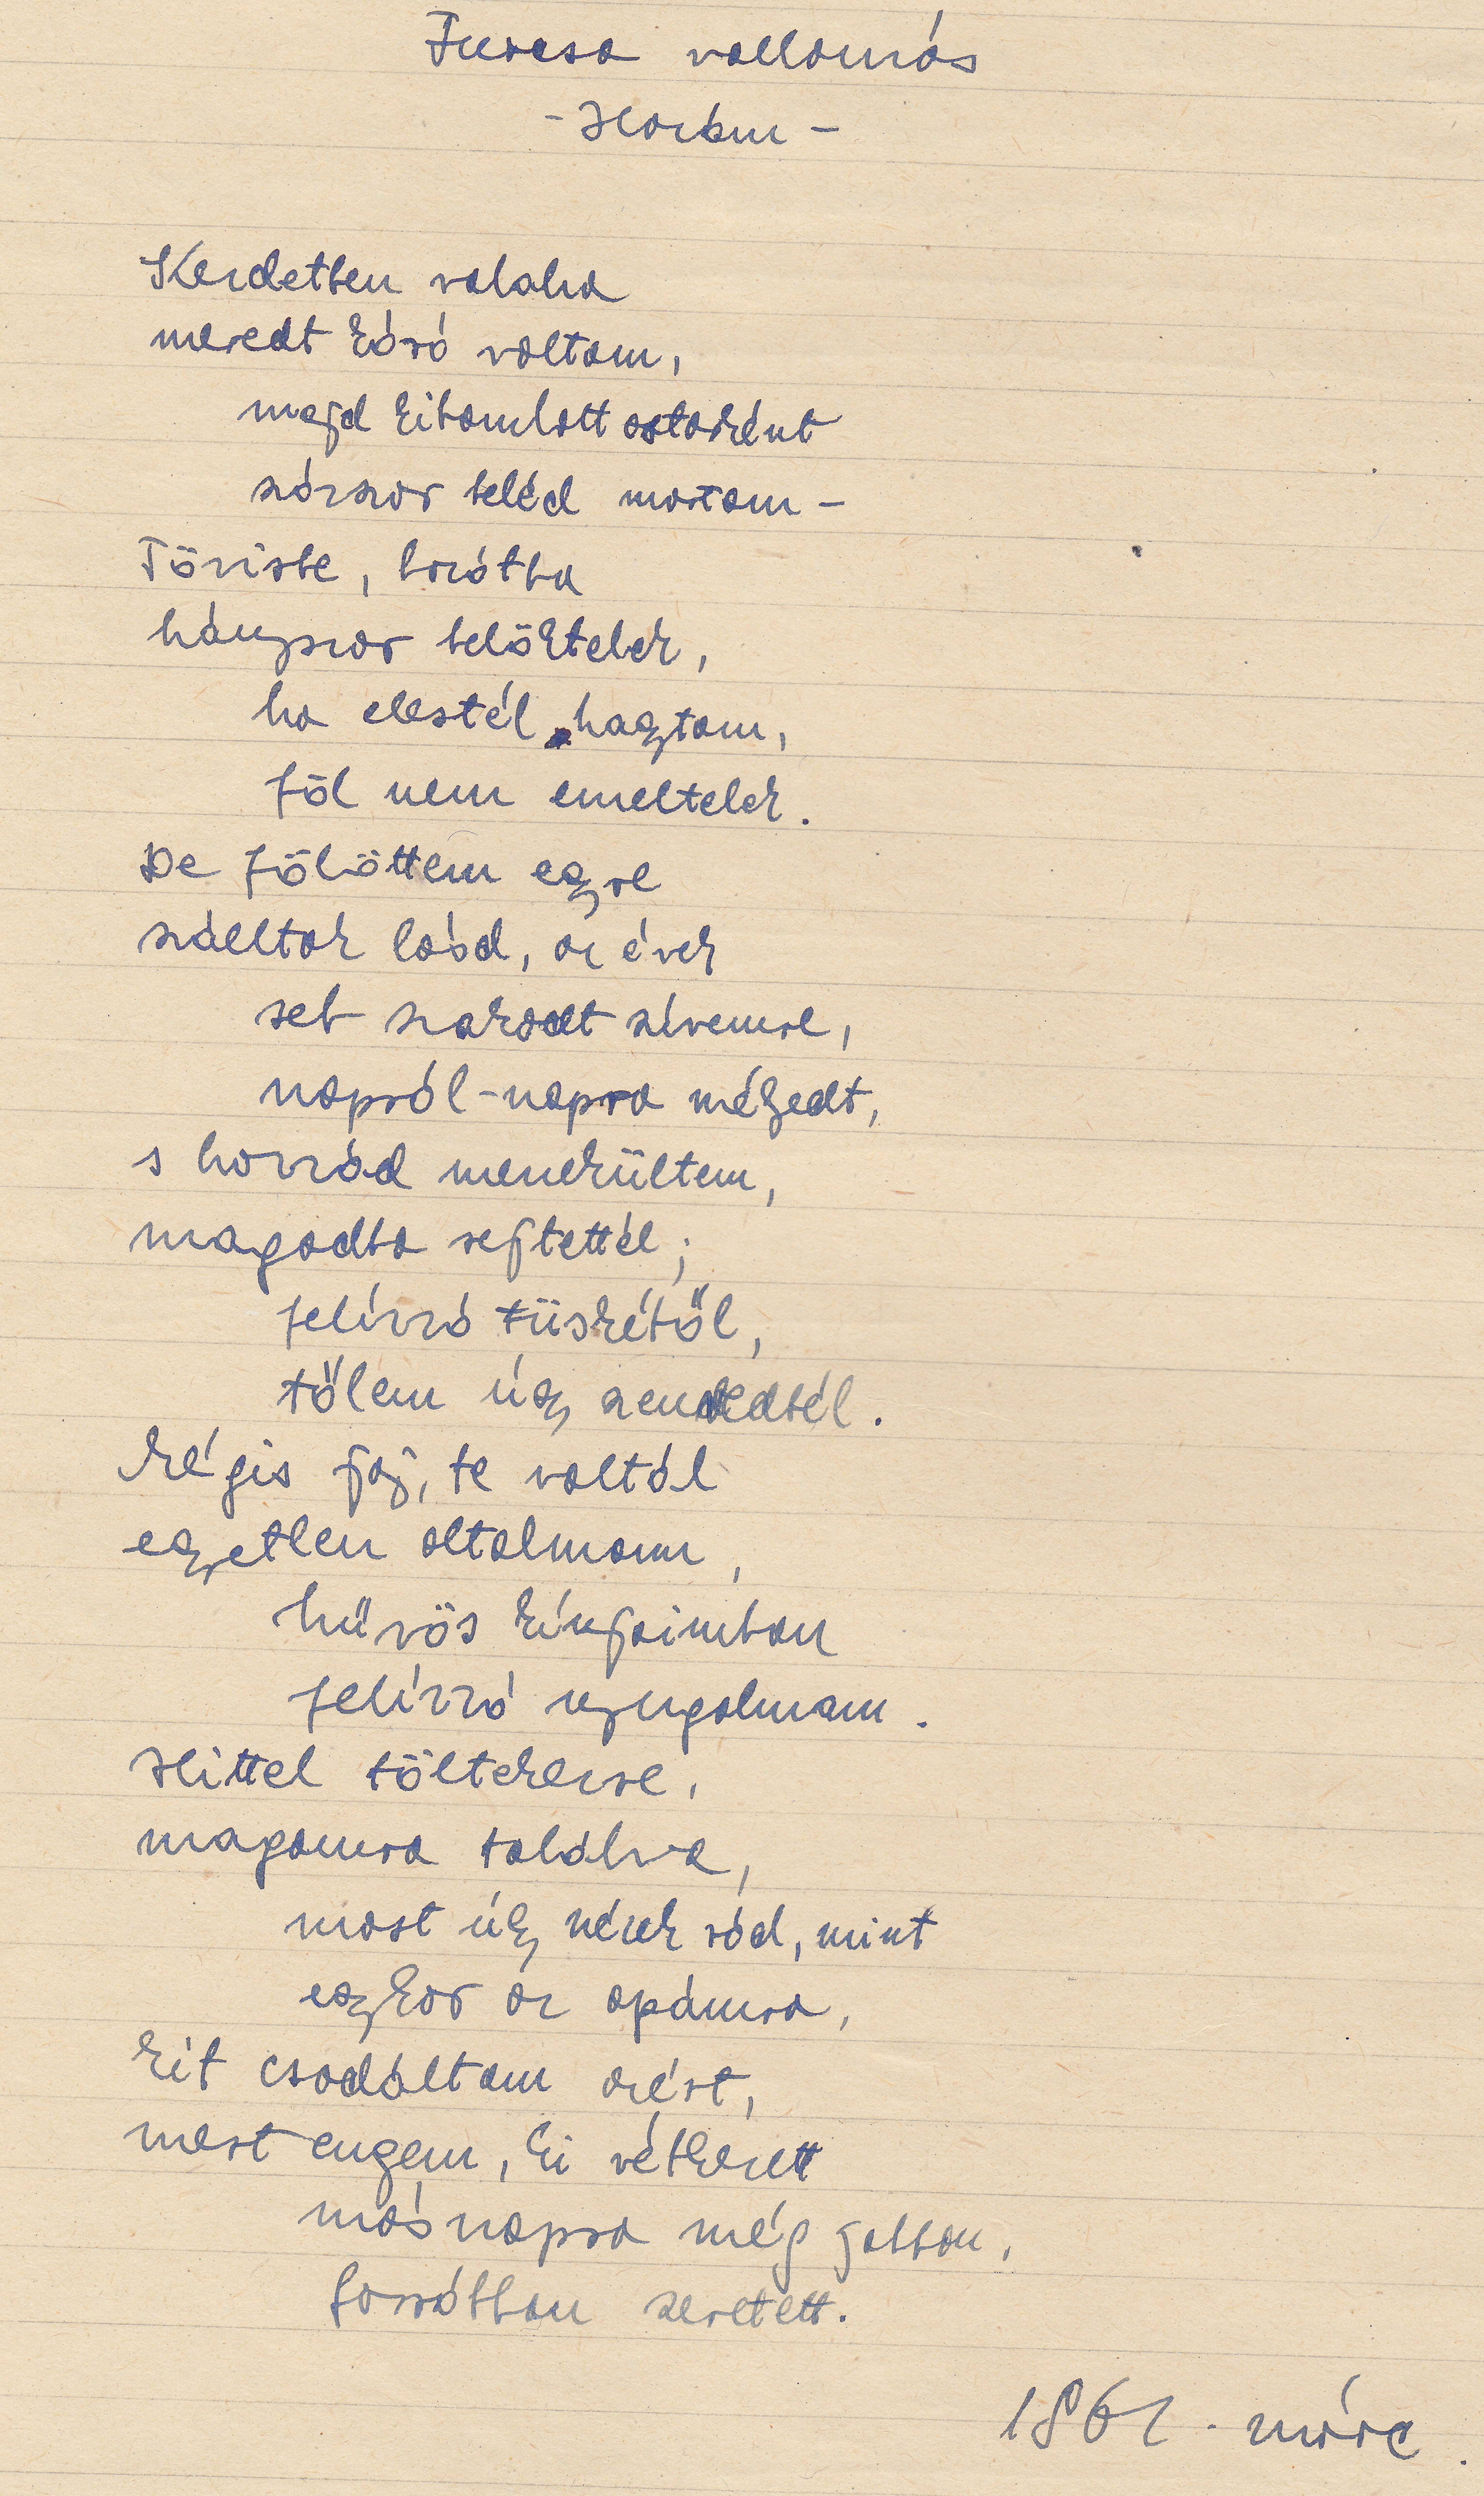 Furcsa vallomás
- Hazám -
Kezdetben valaha
meredt kóró voltam,
majd kibomlott ostorként
százszor beléd martam –
Tövisbe, bozótba
hányszor belöktelek,
ha elestél hagytam,
föl nem emeltelek.
De fölöttem egyre
szálltak lásd, az évek
seb szakadt szívemre,
napról-napra mélyedt,
s hozzád menekültem,
magadba rejtettél;
felizzó tüskétől,
tőlem úgy szenvedtél.
Mégis fáj, te voltál
egyetlen oltalmam,
hűvös kínjaimban
felizzó nyugalmam.
Hittel töltekezve,
magamra találva,
most úgy nézek rád, mint
egykor az apámra,
kit csodáltam azért,
mert engem, ki vétkezett
másnapra még jobban,
forróbban szeretett.
1961. márc.